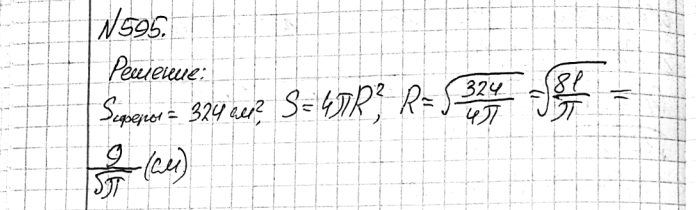 N595.
Решение:
Sсферы = 324 см², S = 4πR², R = √(324/4π) = √(81/π) =
9/√π (см)